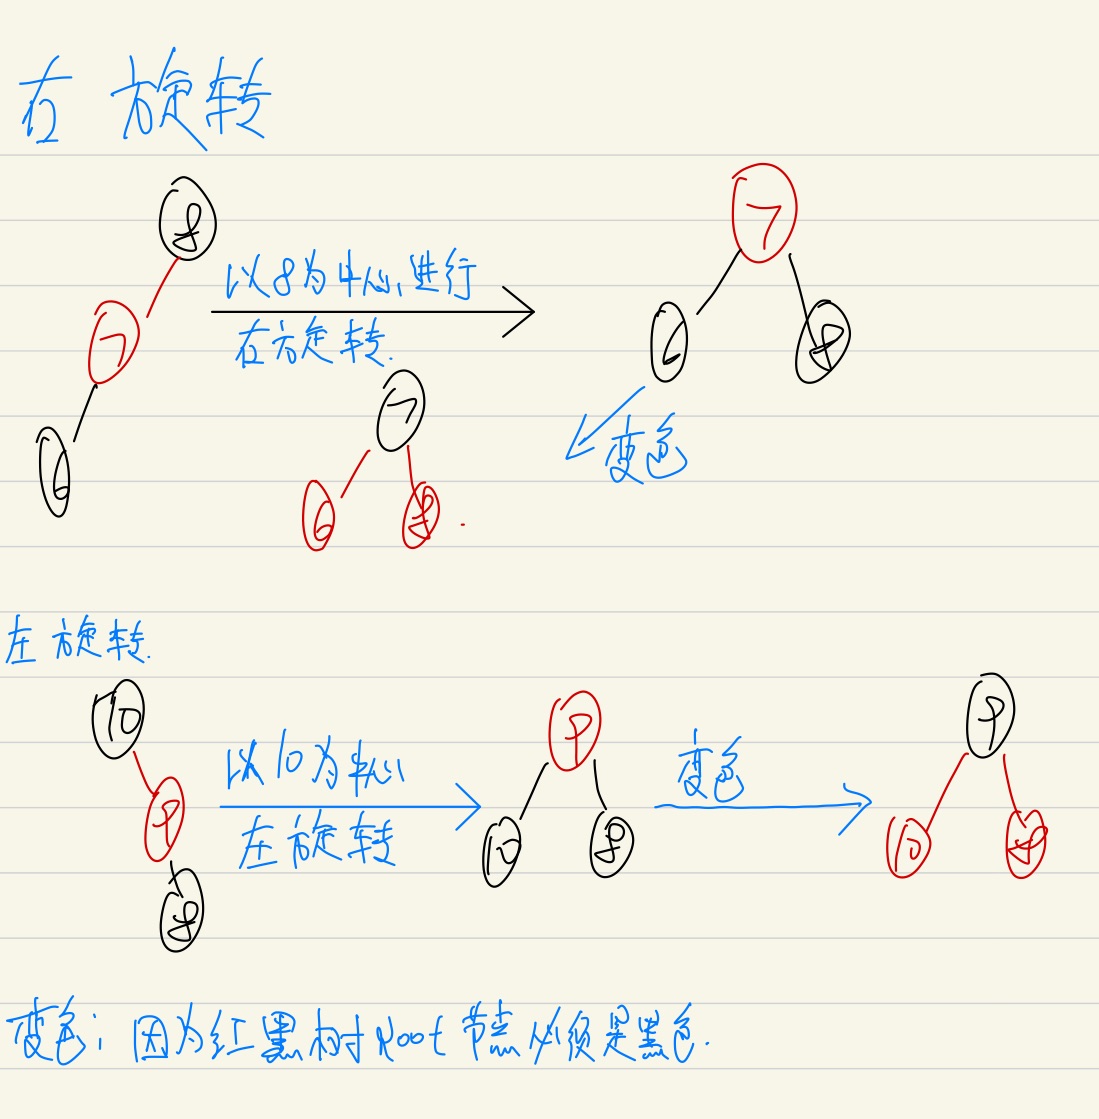 右旋转
8
以8为中心,进行
右旋转.
7
6
7
6
8
变色
7
6
8
左旋转.
10
9
8
以10为中心
左旋转
9
10
8
变色
9
10
8
变色: 因为红黑树Root节点必须是黑色.